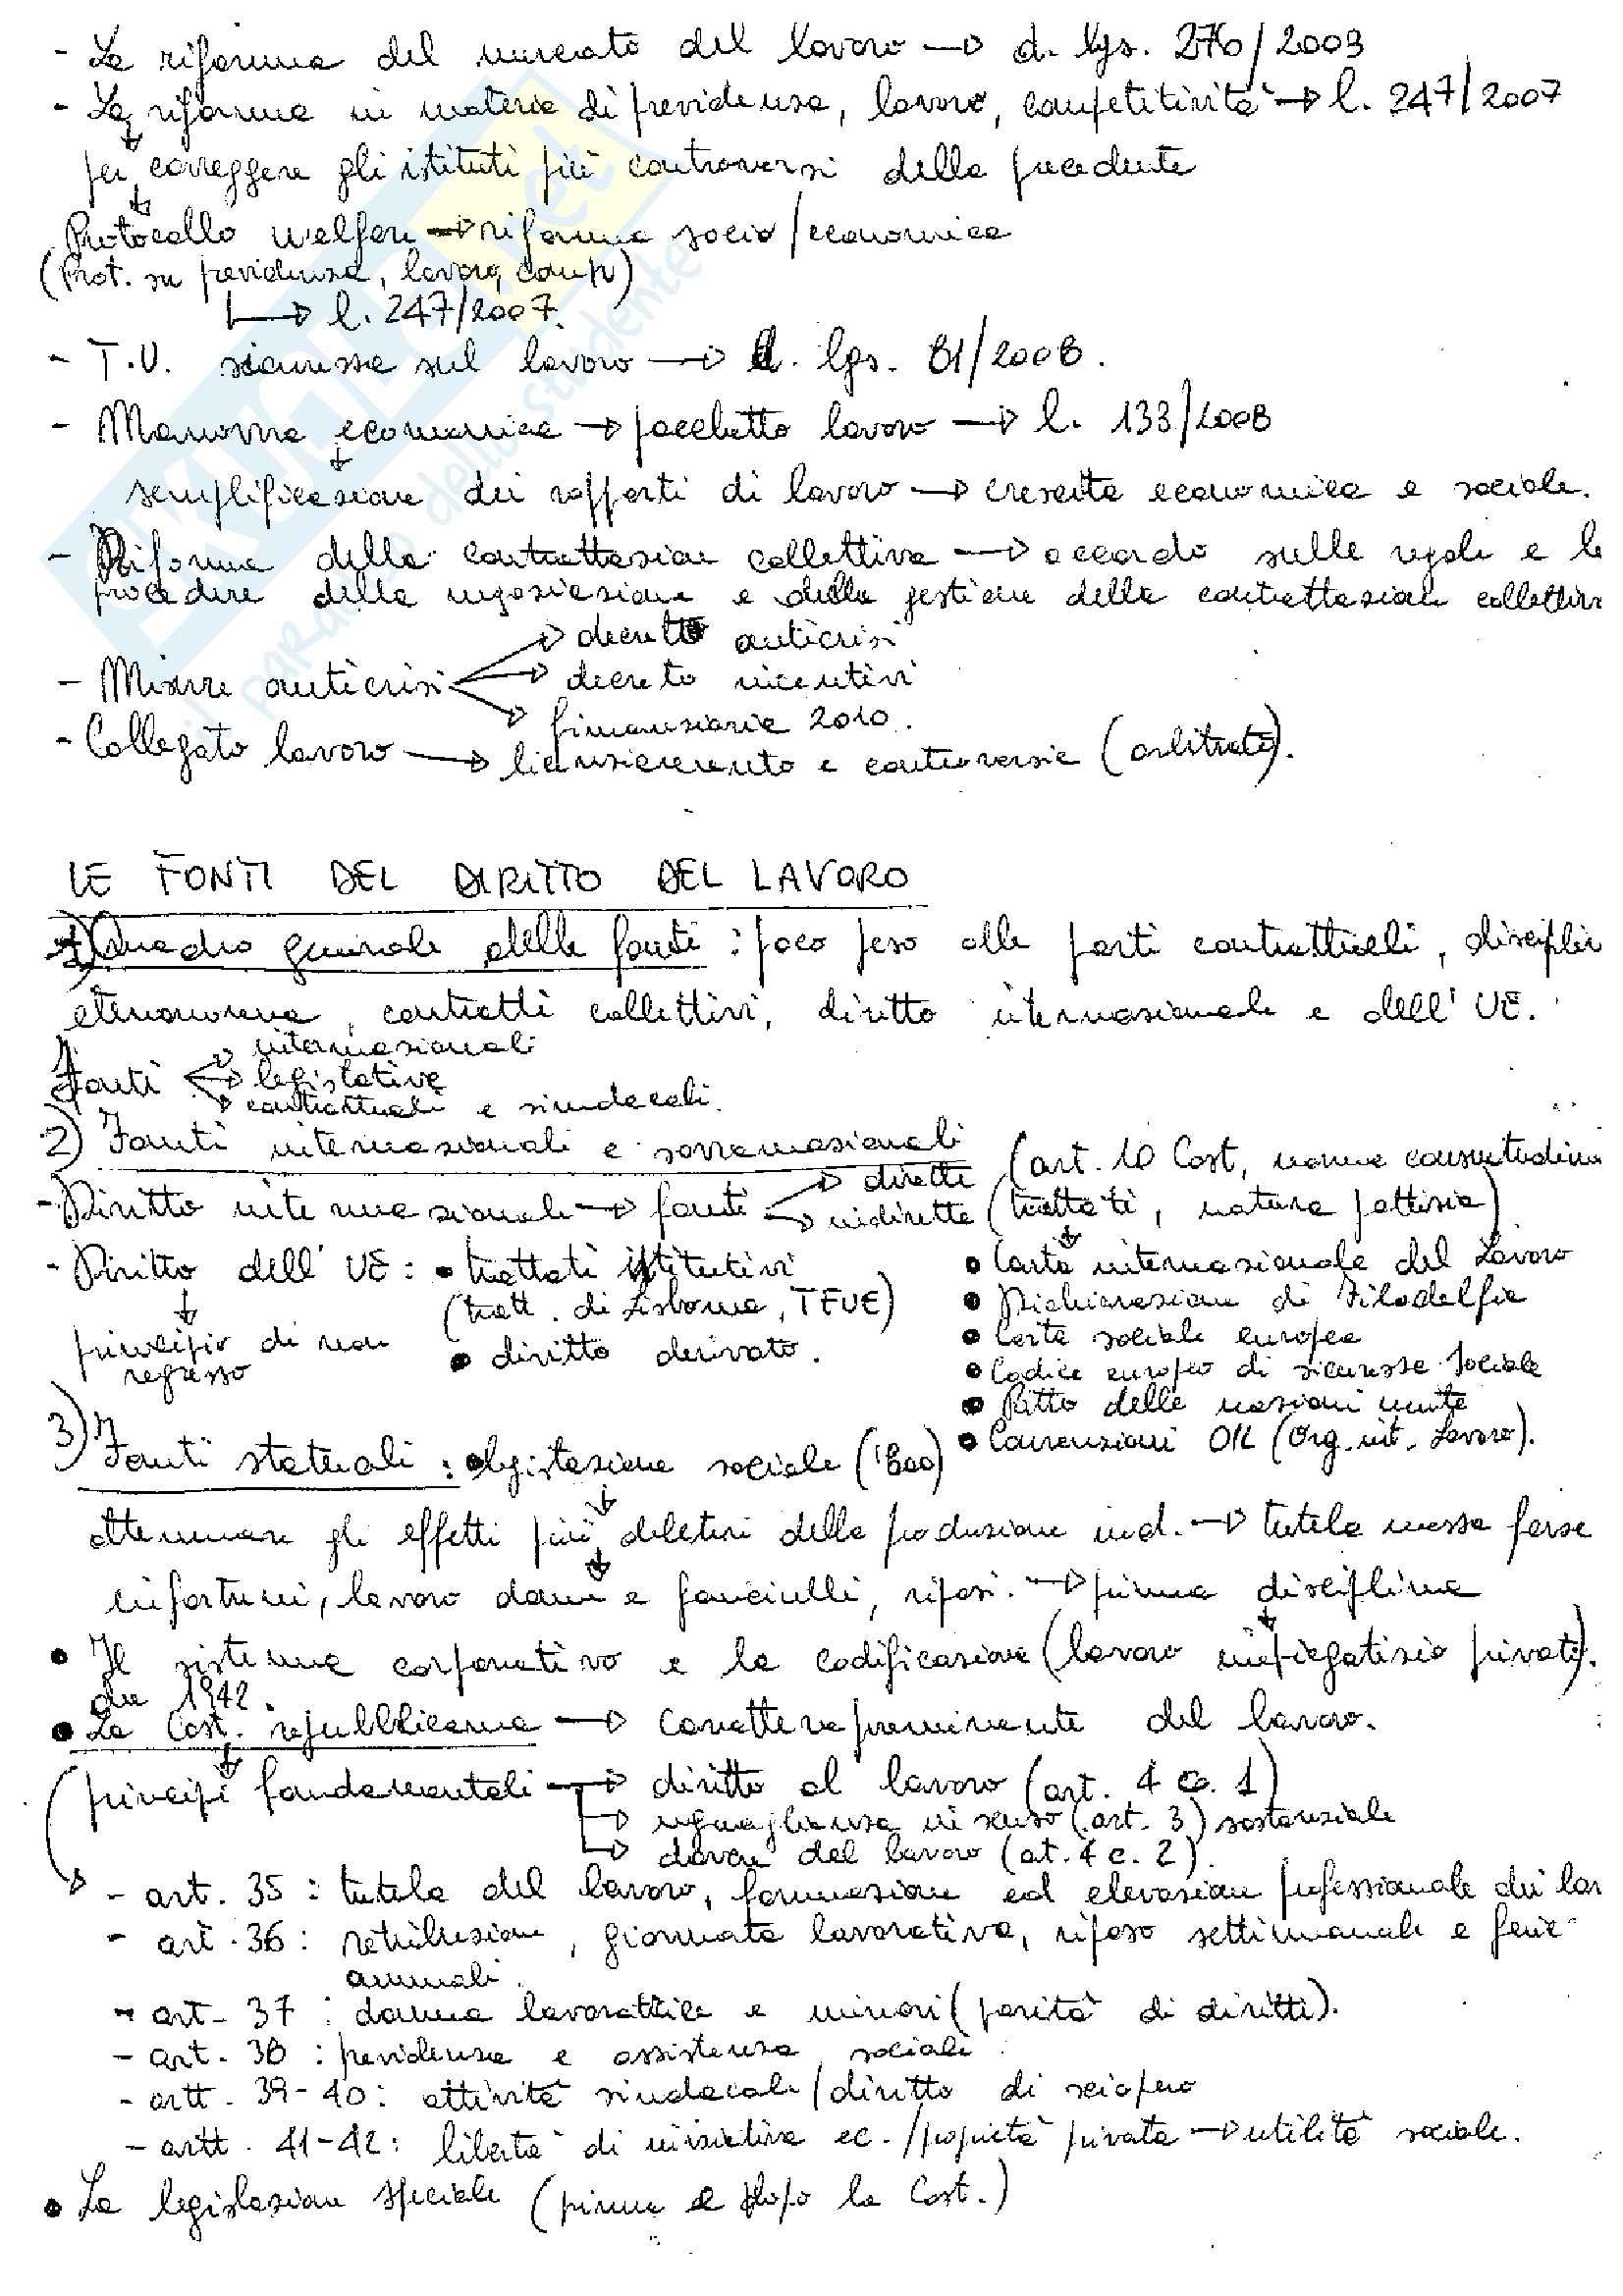 - La riforma del mercato del lavoro → d. lgs. 276/2003
- La riforma in materia di previdenza, lavoro, competitività → l. 247/2007
per correggere gli istituti più controversi della precedente
Protocollo welfare → riforma socio/economica
(Prot. su previdenza, lavoro, comp)
→ l. 247/2007.
- T.U. sicurezza sul lavoro → d. lgs. 81/2008.
- Manovra economica → pacchetto lavoro → l. 133/2008
semplificazione dei rapporti di lavoro → crescita economica e sociale.
- Riforma della contrattazione collettiva → accordo sulle regole e le
procedure della negoziazione e della gestione della contrattazione collettiva
→ decreto anticrisi
- Misure anticrisi → decreto incentivi
→ finanziaria 2010.
- Collegato lavoro → licenziamento e controversie (arbitrato).
LE FONTI DEL DIRITTO DEL LAVORO
1) Quadro generale delle fonti : poco peso alle parti contrattuali, disciplin
eteronoma, contratti collettivi, diritto internazionale e dell' UE.
→ internazionali
Fonti → legislative
→ contrattuali e sindacali.
2) Fonti internazionali e sovranazionali
- Diritto internazionale → fonti → dirette (art. 10 Cost, norme consuetudina
→ indirette (trattati, natura pattizia)
- Diritto dell' UE : • trattati istitutivi
(tratt. di Lisbona, TFUE)
principio di non regresso
• diritto derivato.
• Carta internazionale del Lavoro
• Dichiarazione di Filadelfia
• Carta sociale europea
• Codice europeo di sicurezza sociale
• Patto delle nazioni unite
• Convenzioni OIL (Org. int. Lavoro).
3) Fonti statuali : • legislazione sociale ('800)
attenuare gli effetti più deleteri della produzione ind. → tutela mezze forze
infortuni, lavoro donne e fanciulli, riposi. → prima disciplina
• Il sistema corporativo e la codificazione (lavoro impiegatizio privato).
del 1942.
• La Cost. repubblicana → carattere preminente del lavoro.
principi fondamentali → diritto al lavoro (art. 4 c. 1)
→ uguaglianza in senso (art. 3) sostanziale
→ dovere del lavoro (at. 4 c. 2).
- art. 35 : tutela del lavoro, formazione ed elevazione professionale dei lav
- art. 36 : retribuzione, giornata lavorativa, riposo settimanale e ferie
annuali.
- art. 37 : donna lavoratrice e minori (parità di diritti).
- art. 38 : previdenza e assistenza sociale.
- artt. 39-40 : attività sindacale/diritto di sciopero
- artt. 41-42 : libertà di iniziativa ec. /proprietà privata → utilità sociale.
• La legislazione speciale (prima e dopo la Cost.)